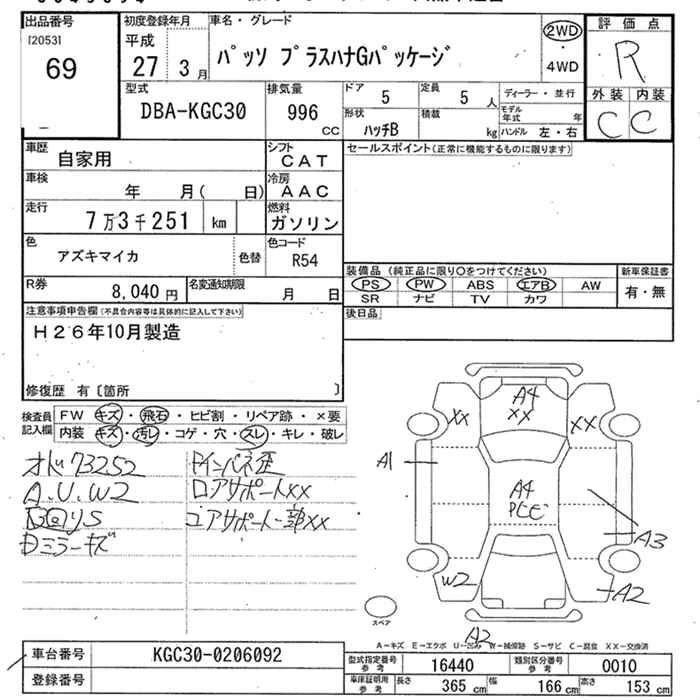 出品番号
[2053]
69
初度登録年月
平成
27 3月
車名・グレード
パッソ プラスハナGパッケージ
2WD
・
4WD
評価点
R
外装 内装
C C
型式
DBA-KGC30
排気量
996
CC
ドア 5
定員 5 人
形状
ハッチB
積載
kg
ディーラー・並行
モデル年式 年
ハンドル 左・右
車歴
自家用
シフト
CAT
車検
年 月( 日)
冷房
AAC
走行
7万3千251 km
燃料
ガソリン
色
アズキマイカ
色替
色コード
R54
R券
8,040 円
名変通知期限
月 日
セールスポイント(正常に機能するものに限ります)
装備品(純正品に限り〇をつけてください)
PS PW ABS エアB AW
SR ナビ TV カワ
新車保証書
有・無
後日品
注意事項申告欄(不具合内容等は具体的に記入して下さい)
H26年10月製造
修復歴 有〔箇所 〕
検査員記入欄
FW キズ・飛石・ヒビ割・リペア跡・×要
内装 キズ・汚レ・コゲ・穴・スレ・キレ・破レ
オド73252
A.U.W2
Dミラーキズ
ドインパネ歪
ロアサポートXX
コアサポート一部XX
A4
XX
XX
XX
A1
A4
PCE
A3
W2
A2
A2
スペア
A-キズ E-エクボ U-凹み W-補修跡 S-サビ C-腐食 XX-交換済
車台番号
KGC30-0206092
登録番号
型式指定番号
参考
16440
類別区分番号
参考
0010
車庫証明用
参考
長さ 365 cm
幅 166 cm
高さ 153 cm